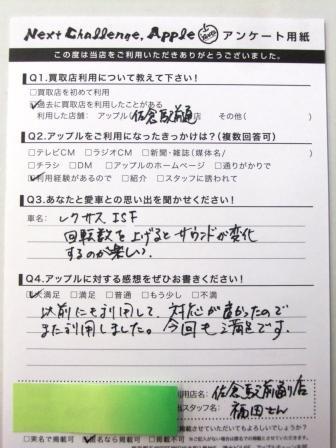 Next Challenge, Apple アンケート用紙
この度は当店をご利用いただきありがとうございました。
Q1.買取店利用について教えて下さい!
□買取店を初めて利用
☑過去に買取店を利用したことがある
利用した店舗: アップル(佐倉駅前通 その他(
Q2.アップルをご利用になったきっかけは?(複数回答可)
□テレビCM □ラジオCM □新聞・雑誌(媒体名/ )
□チラシ □DM □アップルのホームページ □通りがかりで
☑利用経験があるので □紹介 □スタッフに誘われて
Q3.あなたと愛車との思い出を聞かせください!
車名: レクサス ISF
回転数を上げるとサウンドが変化
するのが楽しい。
Q4.アップルに対する感想をぜひお書きください!
☑大満足 □満足 □普通 □もう少し □不満
以前にも利用して、対応が良かったので
また利用しました。今回も満足です。
用店名: 佐倉駅前通り店
当スタッフ名: 福田さん
載させていただいてもよろしいでしょうか?
□実名で掲載可 ☑匿名なら掲載可 □掲載不可